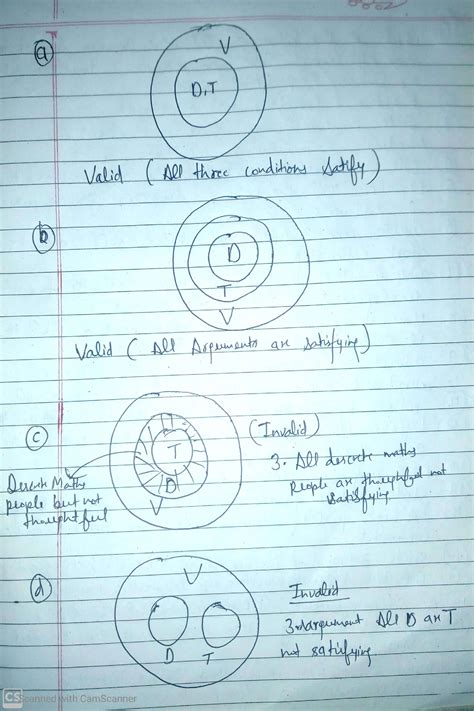 a
V
D,T
Valid (All three conditions Satify)
b
D
T
V
Valid (All Arguments are Satisfying)
c
T
D
V
(Invalid)
3. All descrete maths
People are thoughtful not
Satisfying
Descrete Maths
people but not
thoughtful
d
V
D T
Invalid
3rd argument All D are T
not satisfying
CS Scanned with CamScanner